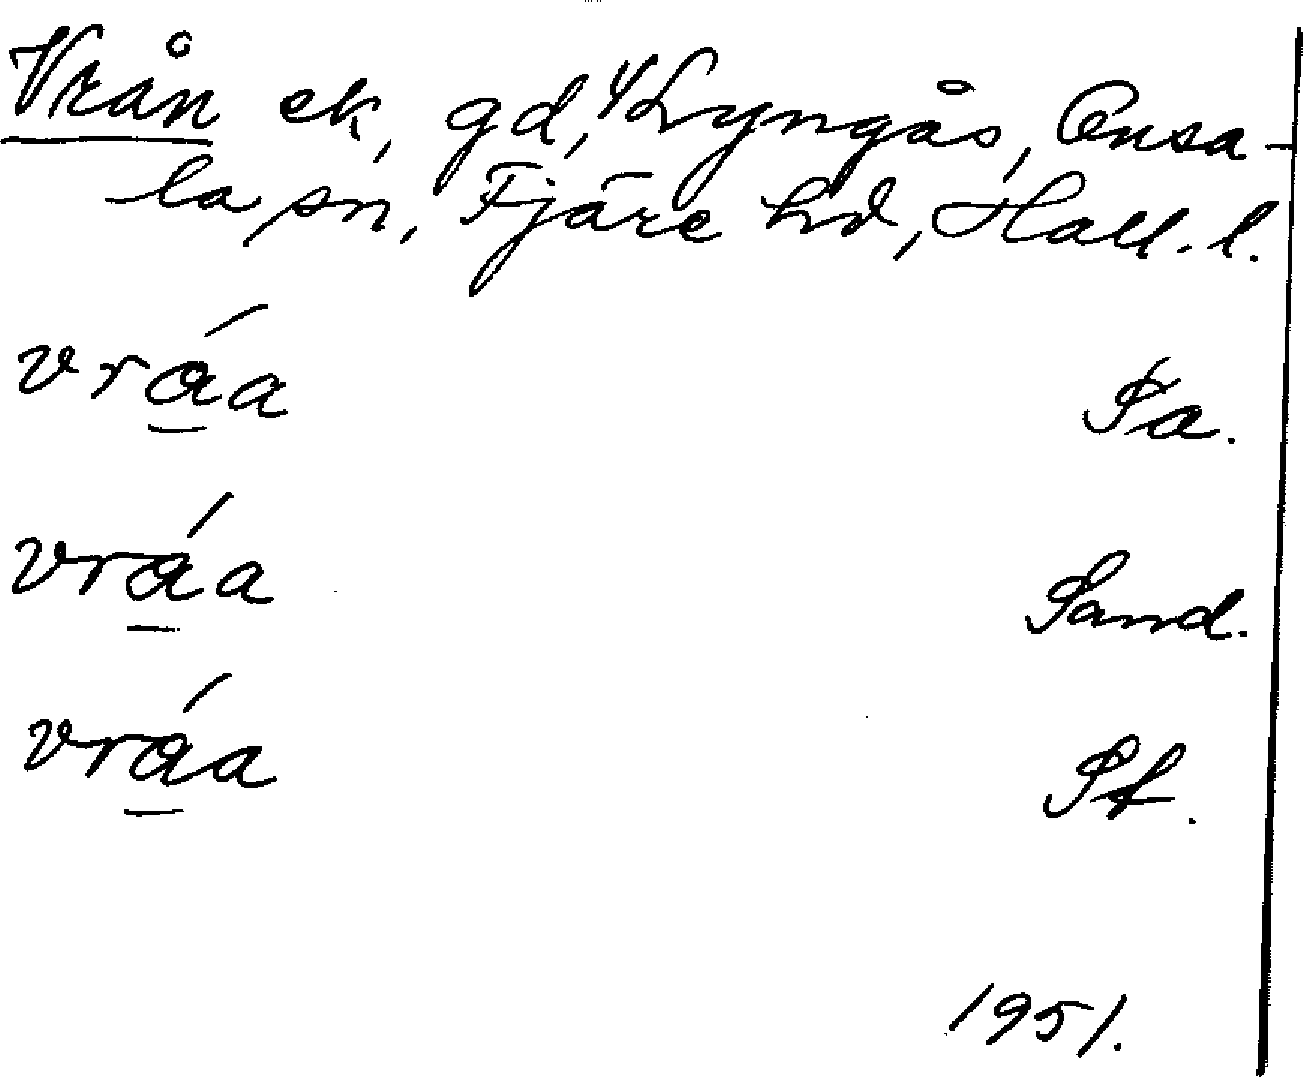 Vrån ek, gd, u Lyngås, Onsa-
la sn, Fjäre hd, Hall. l.
vrá̱a
Pa.
vrá̱a
Sand.
vrá̱a
Pf.
1951.